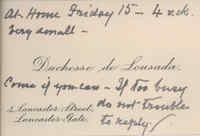 At Home Friday 15 - 4 o.c.k.
Very small -
Duchesse de Lousada.
Come if you can - If too busy
do not trouble
to reply /
2, Lancaster Street,
Lancaster Gate.